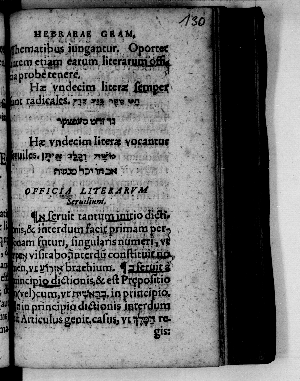 130
HEBRAEAE GRAM.
thematibus iungantur. Oportet
item etiam earum literarum offi
probe tenere.
Hae vndecim literae semper
sunt radicales.
גד זרחט סעפצקר
Hae vndecim literae vocantur
seruiles. משה וכלב איתן
אבהו יכל מנשת
OFFICIA LITERARVM
Seruilium.
א seruit tantum initio dicti
onis, & interdum facit primam per
sonam futuri, singularis numeri, vt
visitabo: interdū constituit no
men, vt אזרוע brachium. ב seruit à
principio dictionis, & est Prepositio
in (vel) cum, vt בראשית in principio.
in principio dictionis interdum
est Articulus genit. casus, vt המלך re
gis: